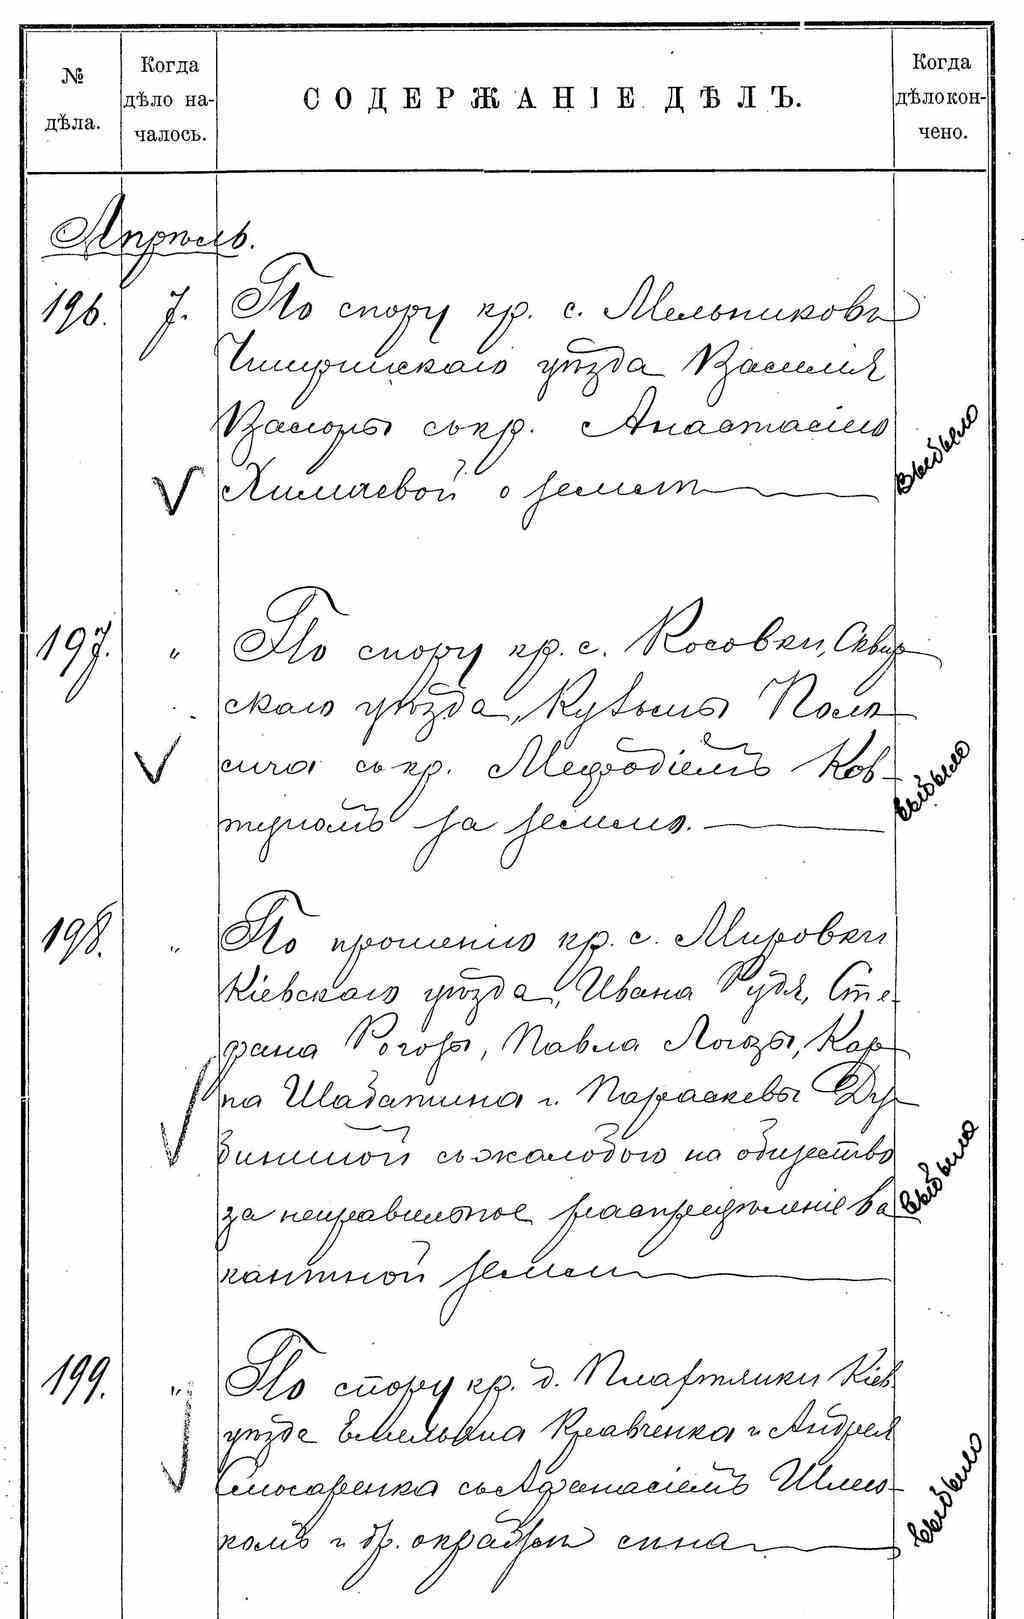 № дѣла.
Когда дѣло на-
чалось.
СОДЕРЖАНІЕ ДѢЛЪ.
Когда дѣло кон-
чено.
Апрѣль.
196. 7. По спору кр. с. Мельниковъ
Чигиринскаго уѣзда Василія
съ кр. Анастасіею
Химичевой о землѣ
выбыло
197. " По спору кр. с. Косовки, Сквир
скаго уѣзда, Кузьмы Поли
сича съ кр. Мефодіемъ Ков-
туномъ за землю.
выбыло
198. " По прошенію кр. с. Мировки
Кіевскаго уѣзда, Ивана Рудя, Сте-
фана Рогозы, Павла Логозы, Кар
па Шабатина и Параскевы Ду-
бининой съ жалобою на общество
за неправильное распредѣленіе ва
кантной земли
выбыло
199. " По спору кр. д. Кіев.
уѣзда Емельяна Кравченка и Андрея
Слюсаренка съ Афанасіемъ Шлю-
комъ и др. о кражѣ сѣна
выбыло